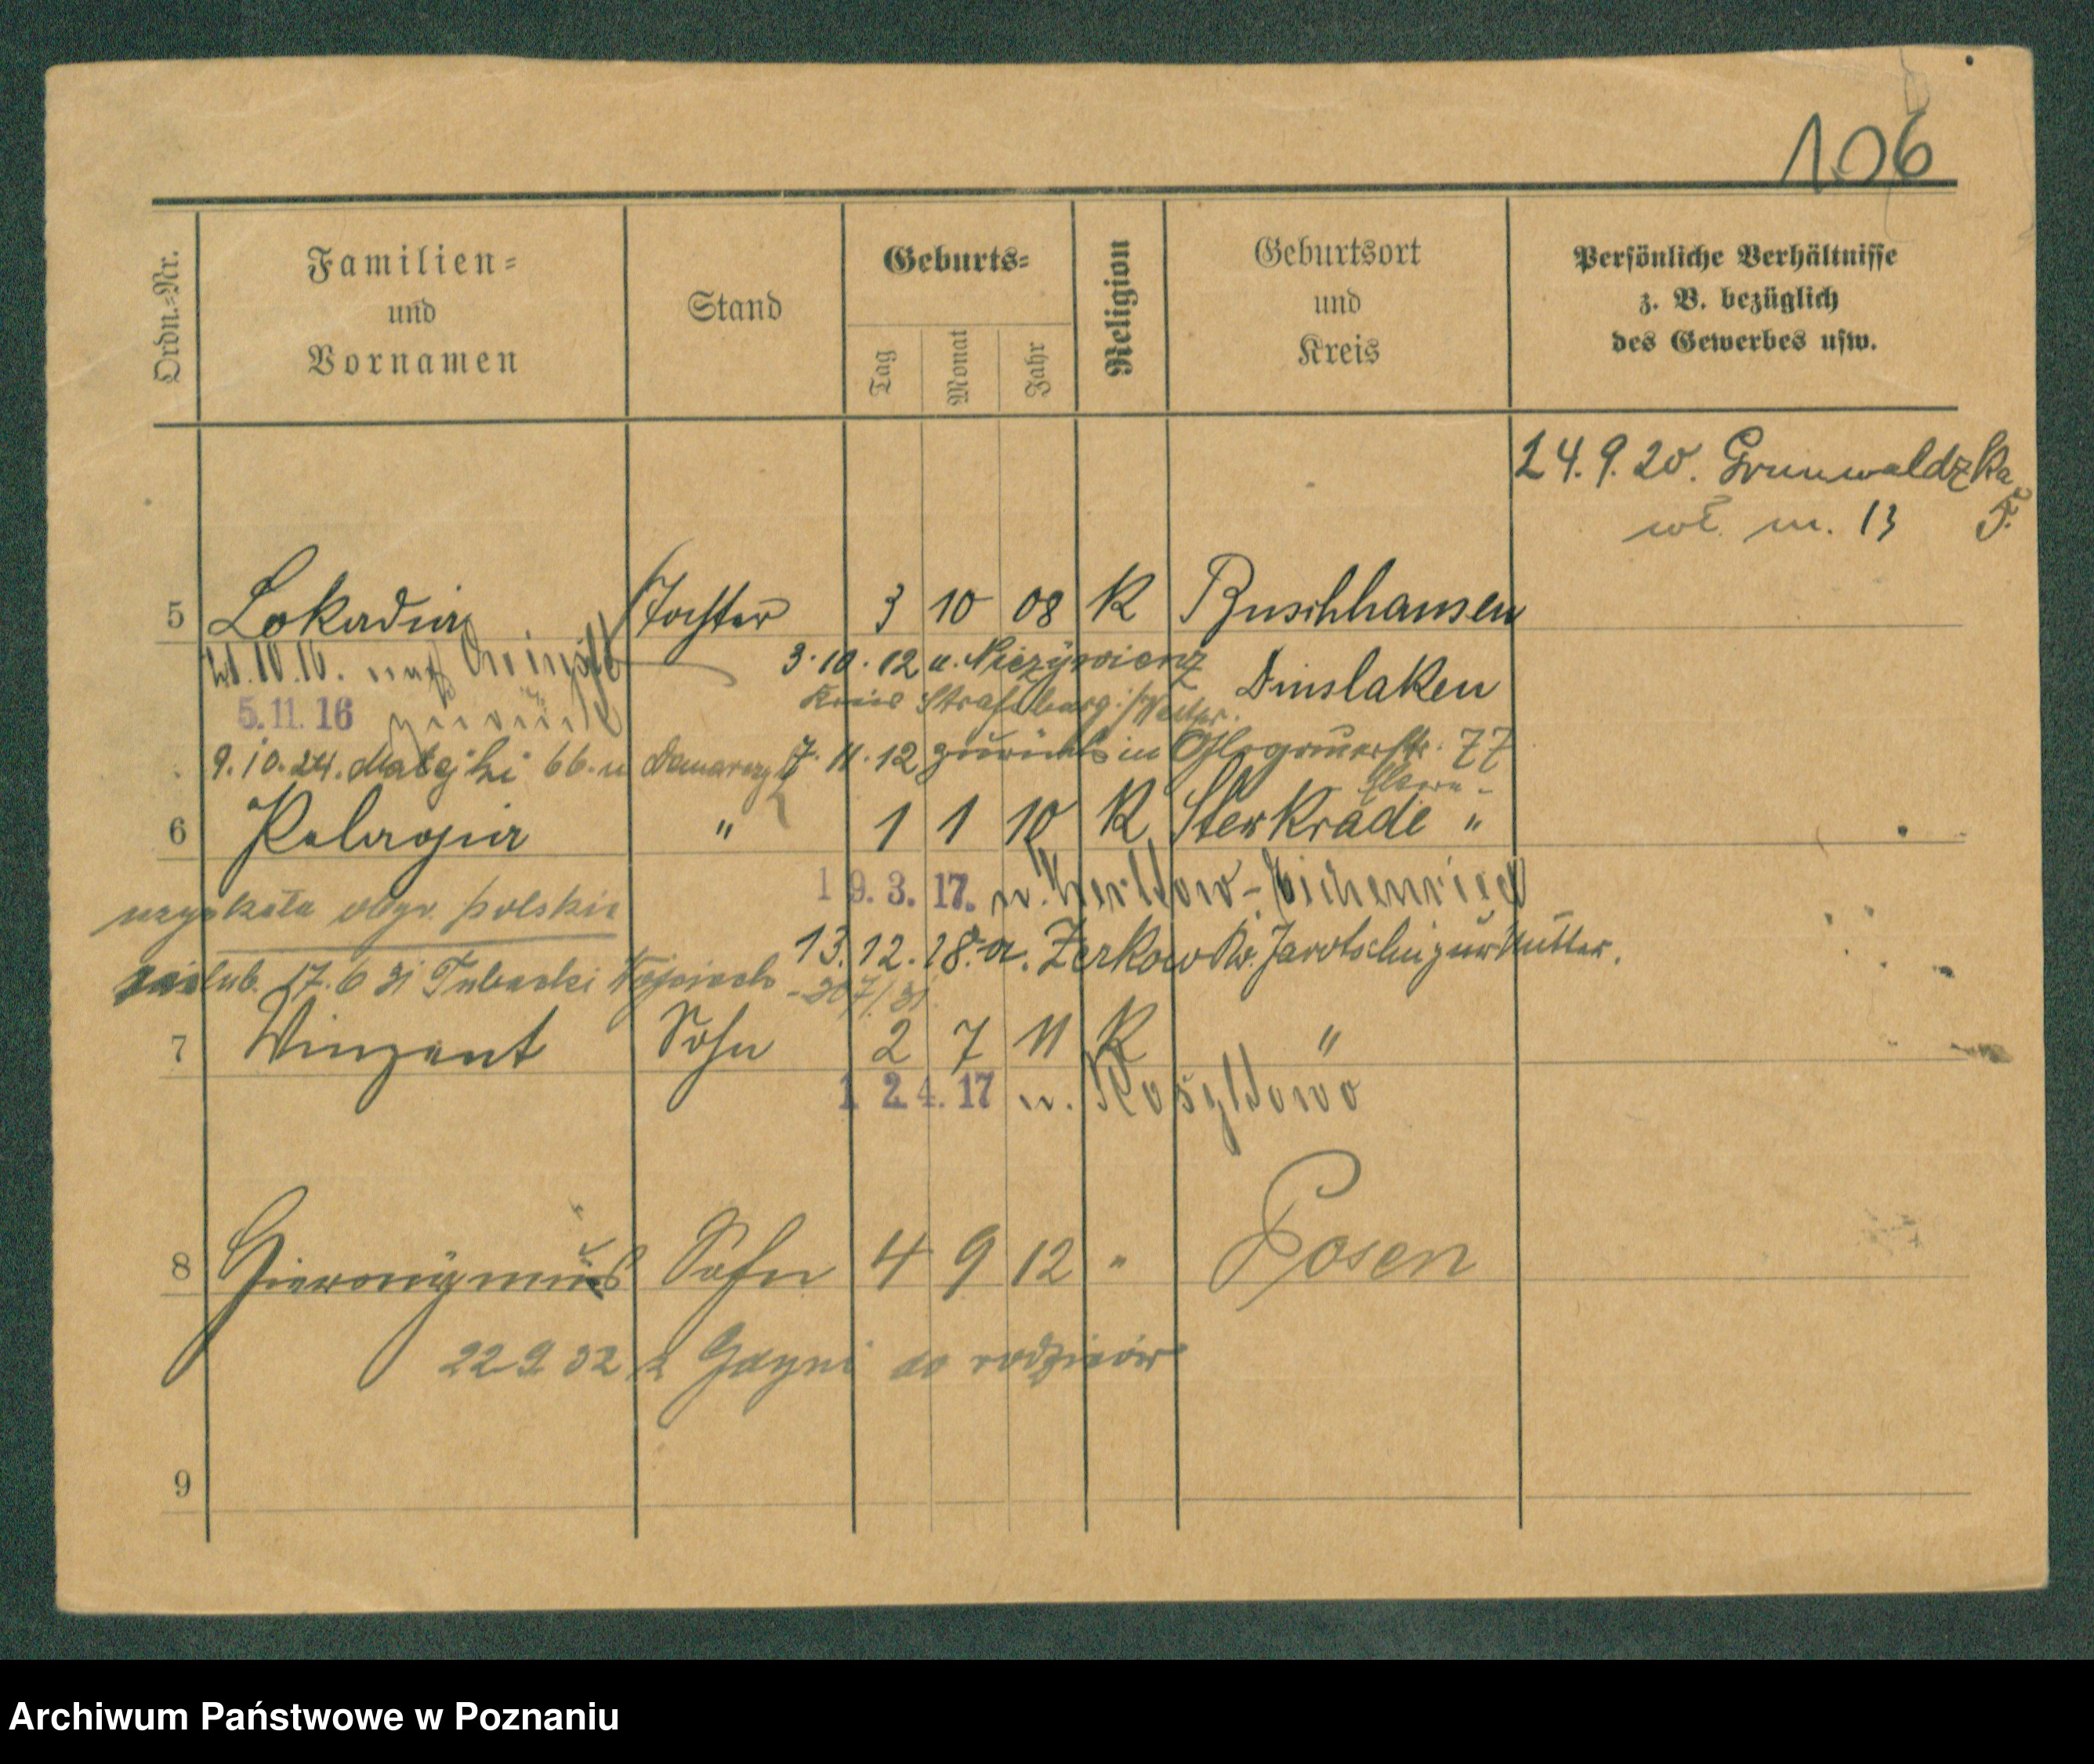 106
Ordn.-Nr.
Familien-
und
Vornamen
Stand
Geburts-
Tag
Monat
Jahr
Religion
Geburtsort
und
Kreis
Persönliche Verhältnisse
z. B. bezüglich
des Gewerbes usw.
24.9.20. Grunwaldzka
5.
wł. m. 13
5 Lokadia Tochter 3 10 08 K Buschhausen
10.16. nach
3.10.12 n.
Dinslaken
5.11.16 zurück
Kreis Strasburg i/Westpr.
9.10.24. Matejki 66. u
7.11.12 zurück in Glogauerstr. 77
Eltern -
6 Pelagia " 1 1 10 K Sterkrade "
19.3.17. n.
uzyskała obyw. polskie
13.12.18. a. Zerkow Kr. Jarotschin zur Mutter.
17.6 31
7 Winzent Sohn 2 7 11 K "
12.4.17 n.
8 Hieronymus Sohn 4 9 12 " Posen
22.9.32 z Gdyni do rodziców
9
Archiwum Państwowe w Poznaniu